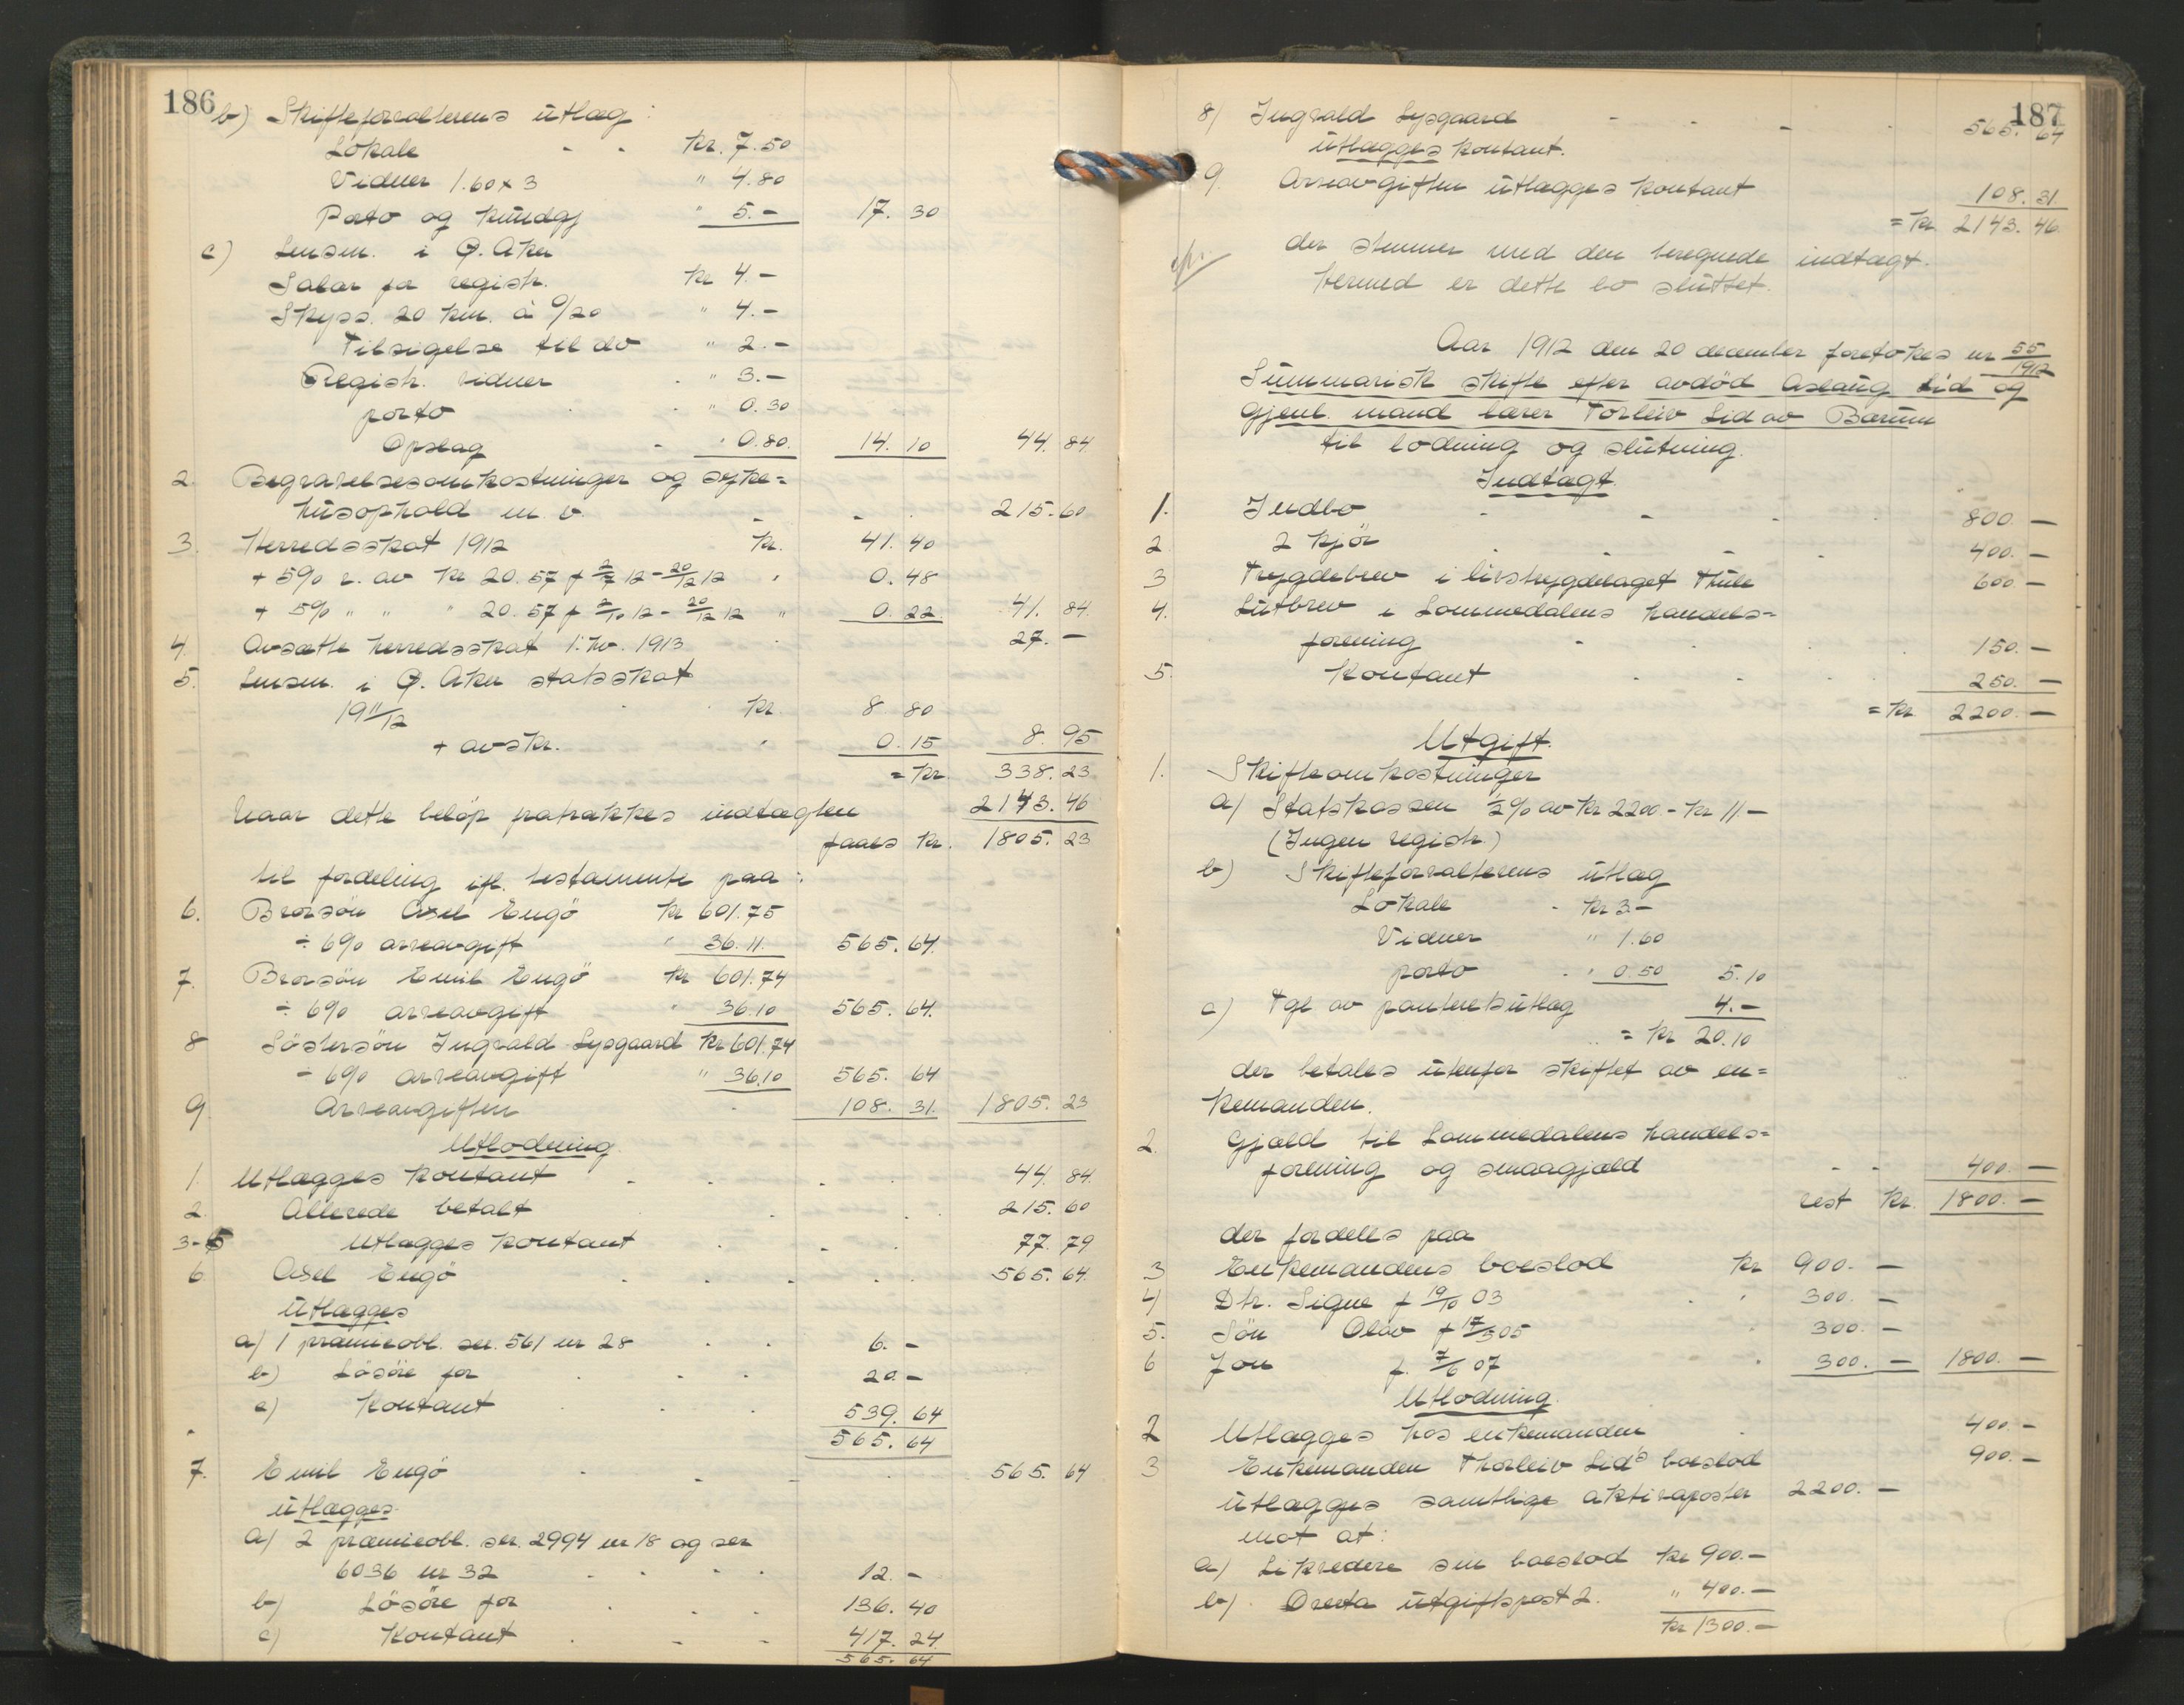 186
b) Skifteforvalterens utlæg:
Lokale - - kr. 7.50
Vidner 1.60 x 3 " 4.80
Porto og kundgj " 5.- 17.30
c) Lensm. i Ø. Aker
Salær for registr. kr 4.-
Skyss. 20 km. à 0/20 " 4.-
Tilsigelse til do " 2.-
Registr. vidner " 3.-
porto " 0.30
Opslag " 0.80. 14.10 44.84
2. Begravelsesomkostninger og syke=
husophold m. v. 215.60
3. Herredsskat 1912 kr. 41.40
+ 5% r. av kr 20.57 f 2/7 12 - 20/12 12 " 0.48
+ 5% " " " 20.57 f 2/10 12 - 20/12 12 " 0.22 41.84
4. Avsatte herredsskat 1. hv. 1913 27.-
5. Lensm. i Ø. Aker statsskat
1911/12 kr. 8.80
+ avskr. 0.15 8.95
= kr. 338.23
Naar dette beløp fratrækkes indtægten 2143.46
faaes kr. 1805.23
til fordeling ifl. testamente paa:
6. Brorsön Axel Engö kr 601.75
÷ 6% arveavgift " 36.11. 565.64.
7. Brorsön Emil Engö kr 601.74
÷ 6% arveavgift " 36.10 565.64.
8 Søstersön Ingvald Lysgaard kr 601.74
÷ 6% arveavgift " 36.10 565.64
9. Arveavgiften 108.31. 1805.23
Utlodning
1. Utlægges kontant 44.84.
2. Allerede betalt 215.60
3-5 Utlægges kontant 77.79
6 Axel Engö 565.64.
utlægges
a) 1 præmieobl. ser. 561 nr 28 6.-
b) Løsöre for 20.-
c) Kontant 539.64
565.64
7. Emil Engö 565.64
utlægges
a) 2 præmieobl. ser. 2994 nr 18 og ser
6036 nr 32 12.-
b) Løsöre for 136.40
c) Kontant 417.24
565.64
187
8) Ingvald Lysgaard 565.64
utlægges kontant.
9. Arveavgiften utlægges kontant 108.31
= kr 2143.46
der stemmer med den beregnede indtægt.
Hermed er dette bo sluttet.
Aar 1912 den 20 december foretokes nr 55/1912
Summarisk skifte efter avdöd Aslaug Lid og
gjenl. mand lærer Torleiv Lid av Bærum
til lodning og slutning.
Indtægt
1. Indbo 800.-
2 2 kjör 400.-
3 Trygdebrev i livstrygdelaget Thule 600-
4. Lutbrev i Lommedalens handels=
forening 150.-
5. Kontant 250.-
= kr 2200.-
Utgift.
1. Skifteomkostninger
a) Statskassen 1/2% av kr 2200 - kr 11.-
(Ingen registr.)
b) Skifteforvalterens utlæg
Lokale kr 3.-
Vidner " 1.60
porto " 0.50 5.10
c) Tgl av panterettsutlæg 4.-
= kr 20.10
der betales utenfor skiftet av en=
kemanden.
2. Gjæld til Lommedalens handels=
forening og smaagjæld 400.-
rest kr. 1800.-
der fordeles paa
3 Enkemandens boeslod kr 900.-
4) Dtr. Signe f 19/10 03 300.-
5. Sön Olav f 17/5 05 300.-
6 Jon f. 7/6 07 300.- 1800.-
Utlodning.
2 Utlægges hos enkemanden 400.-
3 Enkemanden Thorleiv Lid's boeslod 900.-
utlægges samtlige aktivaposter 2200.-
mot at:
a) Likvidere sin boeslod kr 900.-
b) Overta utgiftspost 2. " 400.-
kr 1300.-